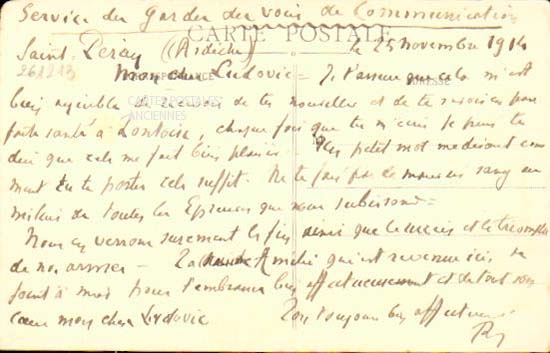 Service des Gardes des voies de Communication
CARTE POSTALE
Saint Péray (Ardèche) le 25 Novembre 1914
261213
Mon cher Ludovic = Je t'assure que cela m'est
CORRESPONDANCE
ADRESSE
CARTES POSTALES
ANCIENNES
bien agréable de recevoir de tes nouvelles et de te savoir en par
faite santé à Pontoise, chaque fois que tu m'écris je peux te
dire que cela me fait bien plaisir. Un petit mot me disant com
ment tu te portes cela suffit. Ne te fais pas de mauvais sang au
milieu de toutes les Epreuves que nous subissons =
Nous en verrons surement la fin ainsi que le succès et le triomphe
de nos armées - La Amélie qui est revenue ici se
joint à moi pour t'embrasser bien affectueusement et de tout son
cœur mon cher Ludovic Ton toujours bien affectueux